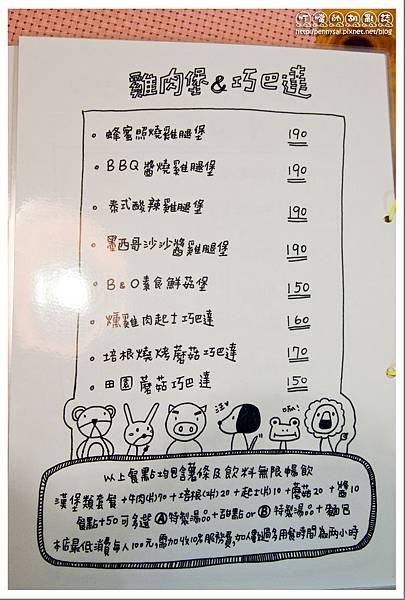 叮噹的胡亂誌
http://pennysai.pixnet.net/blog
雞肉堡&巧巴達
蜂蜜照燒雞腿堡 190
BBQ醬燒雞腿堡 190
泰式酸辣雞腿堡 190
墨西哥沙沙醬雞腿堡 190
B&O素食鮮菇堡 150
燻雞肉起士巧巴達 160
培根燒烤蘑菇巧巴達 170
田園蘑菇巧巴達 150
汪! 呱!
以上餐點均包含薯條及飲料無限暢飲
漢堡類套餐+牛肉(片)70+培根(片)20+起士(片)10+蘑菇20+醬10
餐點+50可多選Ⓐ特製湯品+甜點orⒷ特製湯品+麵包
本店最低消費每人100元,需加收10%服務費,如人數過多用餐時間為兩小時